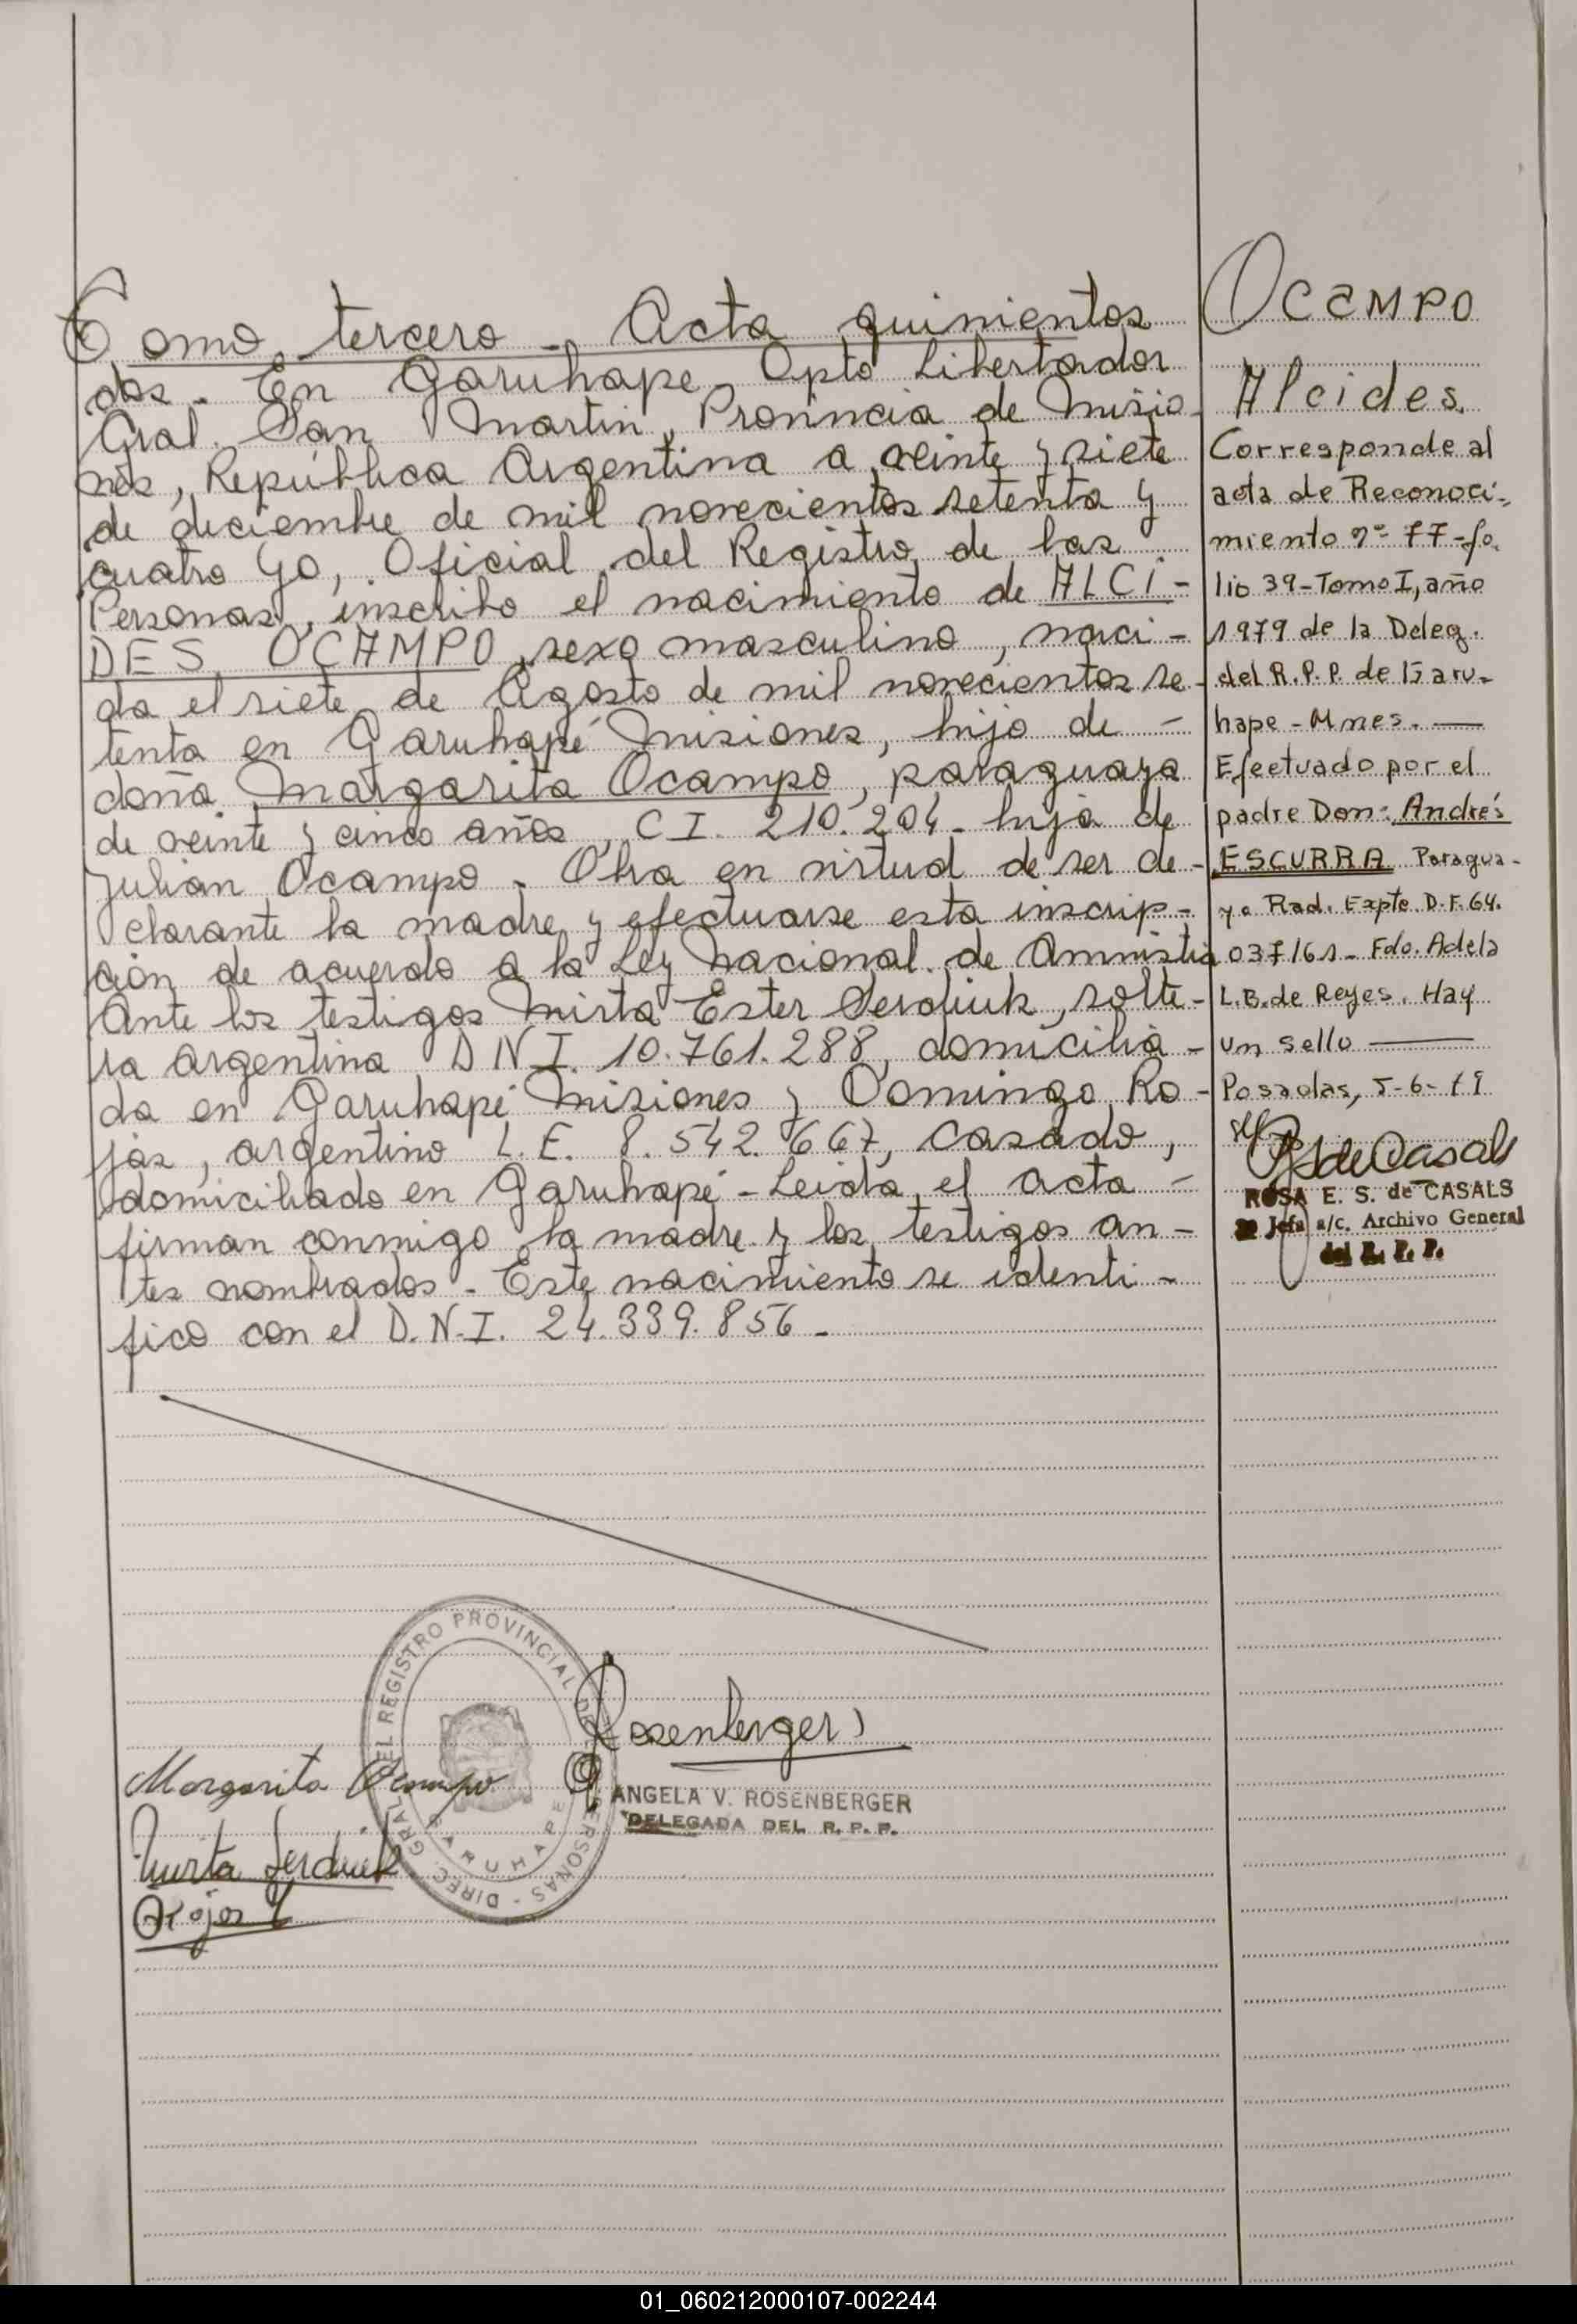 Tomo tercero - Acta quinientos
dos. En Garuhape, Dpto Libertador
Gral. San Martin, Provincia de Misio-
nes, República Argentina a veinte y siete
de diciembre de mil novecientos setenta y
cuatro Yo, Oficial del Registro de las
Personas, inscribo el nacimiento de ALCI-
DES OCAMPO, sexo masculino, naci-
do el siete de Agosto de mil novecientos se-
tenta en Garuhapé Misiones, hijo de -
doña Margarita Ocampo, paraguaya
de veinte y cinco años, C I. 210.204- hija de
Julian Ocampo. Obra en virtud de ser de-
clarante la madre y efectuarse esta inscrip-
ción de acuerdo a la Ley Nacional de Amnistia
Ante los testigos Mirta Ester Serdiuk, solte-
ra argentina D N I. 10.761.288, domicilia-
da en Garuhapé Misiones y Domingo Ro-
jas, argentino L. E. 8.542.667, casado,
domiciliado en Garuhapé - Leida el acta -
firman conmigo la madre y los testigos an-
tes nombrados - Este nacimiento se identi-
fico con el D.N.I. 24.339.856 -
OCAMPO
Alcides.
Corresponde al
acta de Reconoci-
miento nº 77 - fo-
lio 39 - Tomo I, año
1979 de la Deleg.
del R.P.P. de Garu-
hape - Mnes. —
Efectuado por el
padre Don: Andrés
ESCURRA Paragua-
yo Rad. Expte D.F. 64.
037/61 - Fdo. Adela
L.B. de Reyes. Hay
un sello —
Posadas, 5-6-79
RSdeCasals
ROSA E. S. de CASALS
Jefa a/c. Archivo General
del R. P. P.
Rosenberger
ANGELA V. ROSENBERGER
DELEGADA DEL R. P. P.
DIREC. GRAL. DEL REGISTRO PROVINCIAL DE LAS PERSONAS -
GARUHAPE
Margarita Ocampo
Mirta Serdiuk
Rojas
01_060212000107-002244